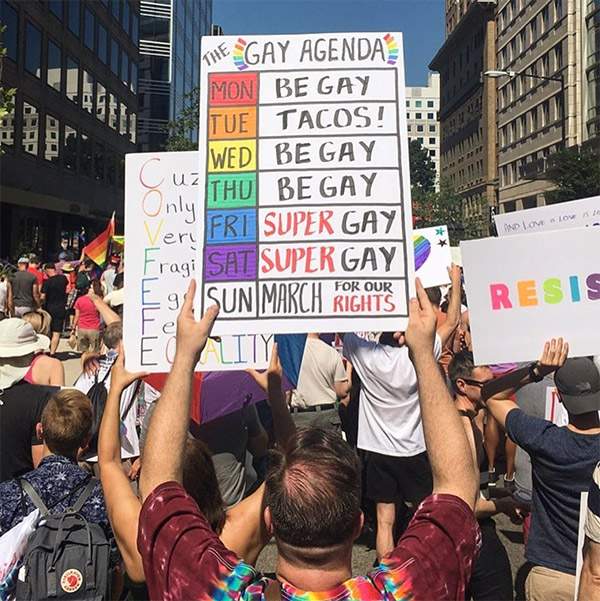 THE GAY AGENDA
MON BE GAY
TUE TACOS!
WED BE GAY
THU BE GAY
FRI SUPER GAY
SAT SUPER GAY
SUN MARCH FOR OUR RIGHTS
Cuz
Only
Very
Fragi
eg
Fe
EQUALITY
AND LOVE IS LOVE IS LO
RESIS